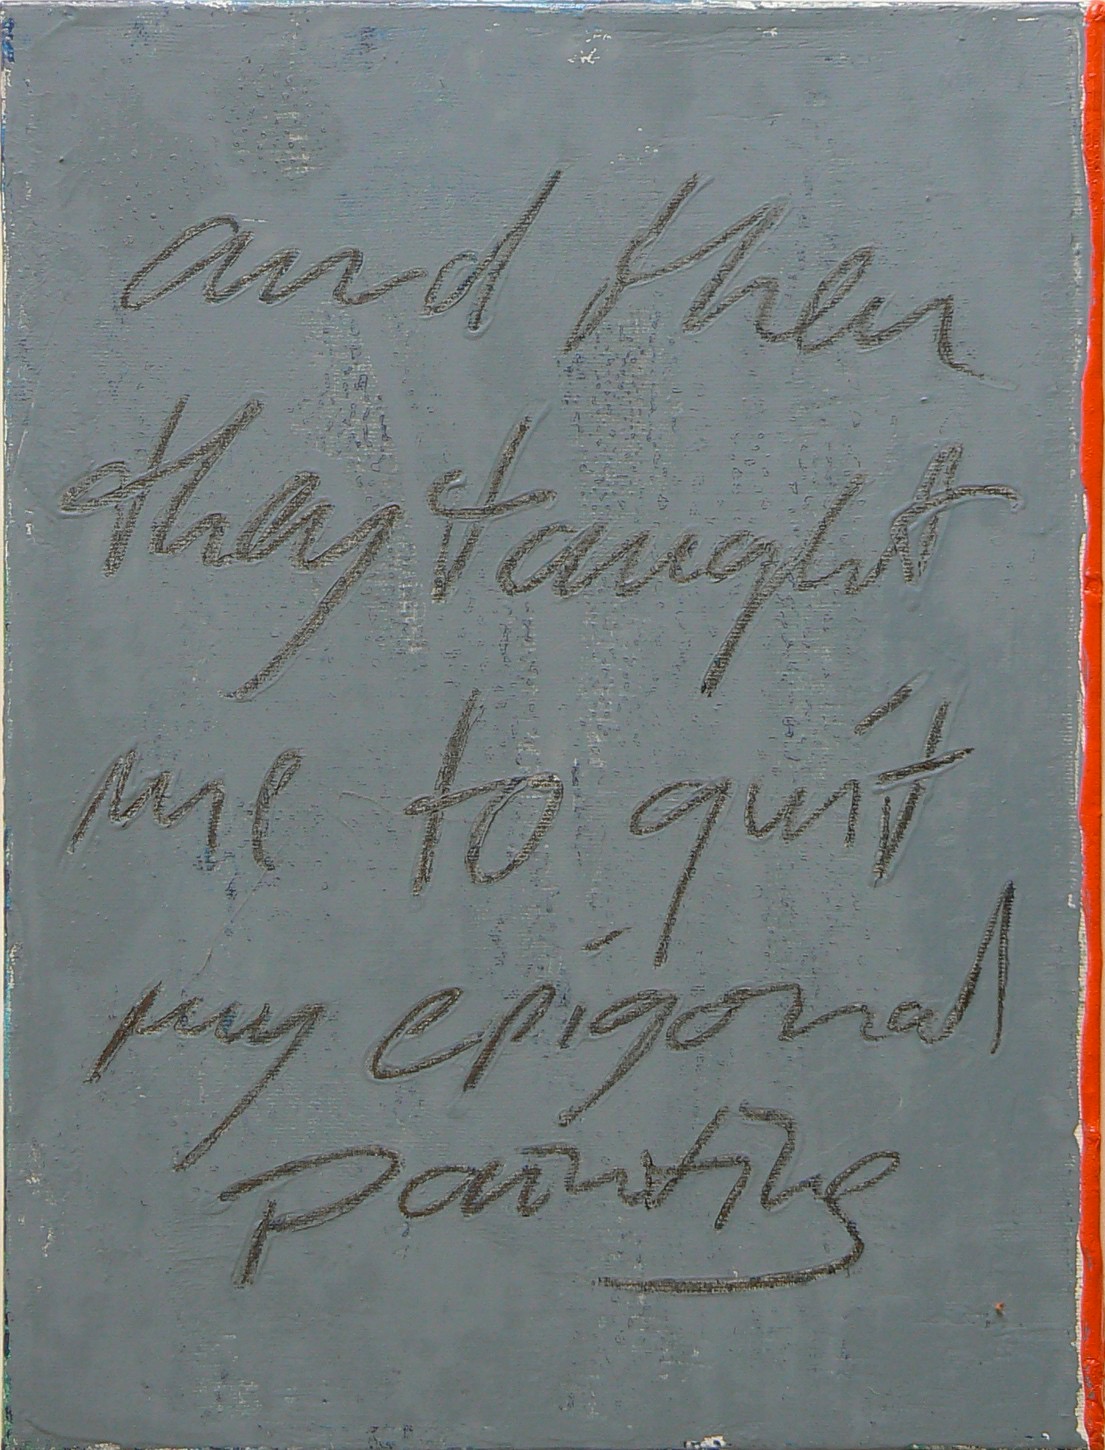 and then
they taught
me to quit
my epigonal
painting